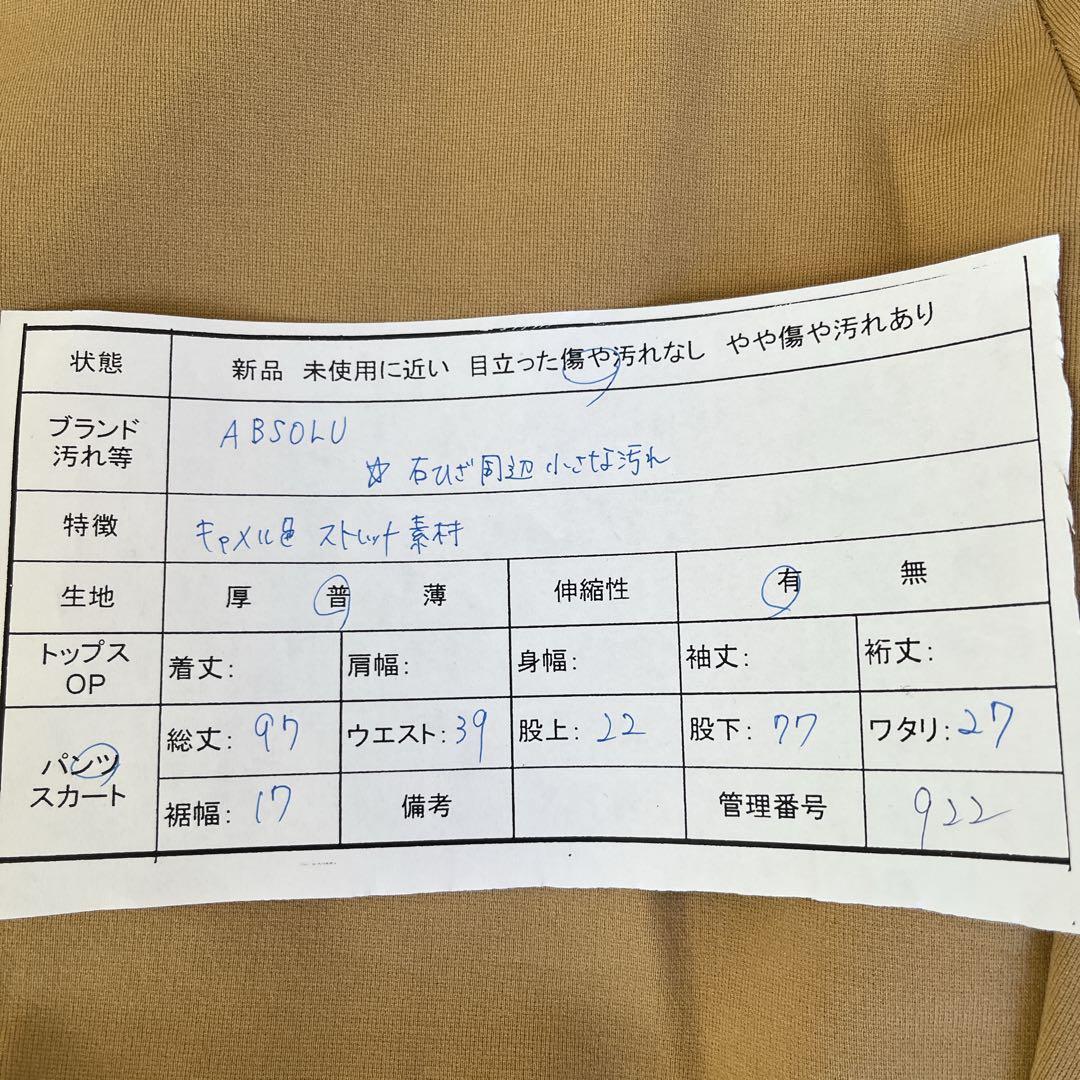 状態 新品 未使用に近い 目立った傷や汚れなし やや傷や汚れあり
ブランド 汚れ等
ABSOLU
☆ 右ひざ周辺 小さな汚れ
特徴 キャメル色 ストレッチ素材
生地 厚 普 薄 伸縮性 有 無
トップス OP 着丈: 肩幅: 身幅: 袖丈: 裄丈:
パンツ スカート
総丈: 97 ウエスト: 39 股上: 22 股下: 77 ワタリ: 27
裾幅: 17 備考 管理番号 922